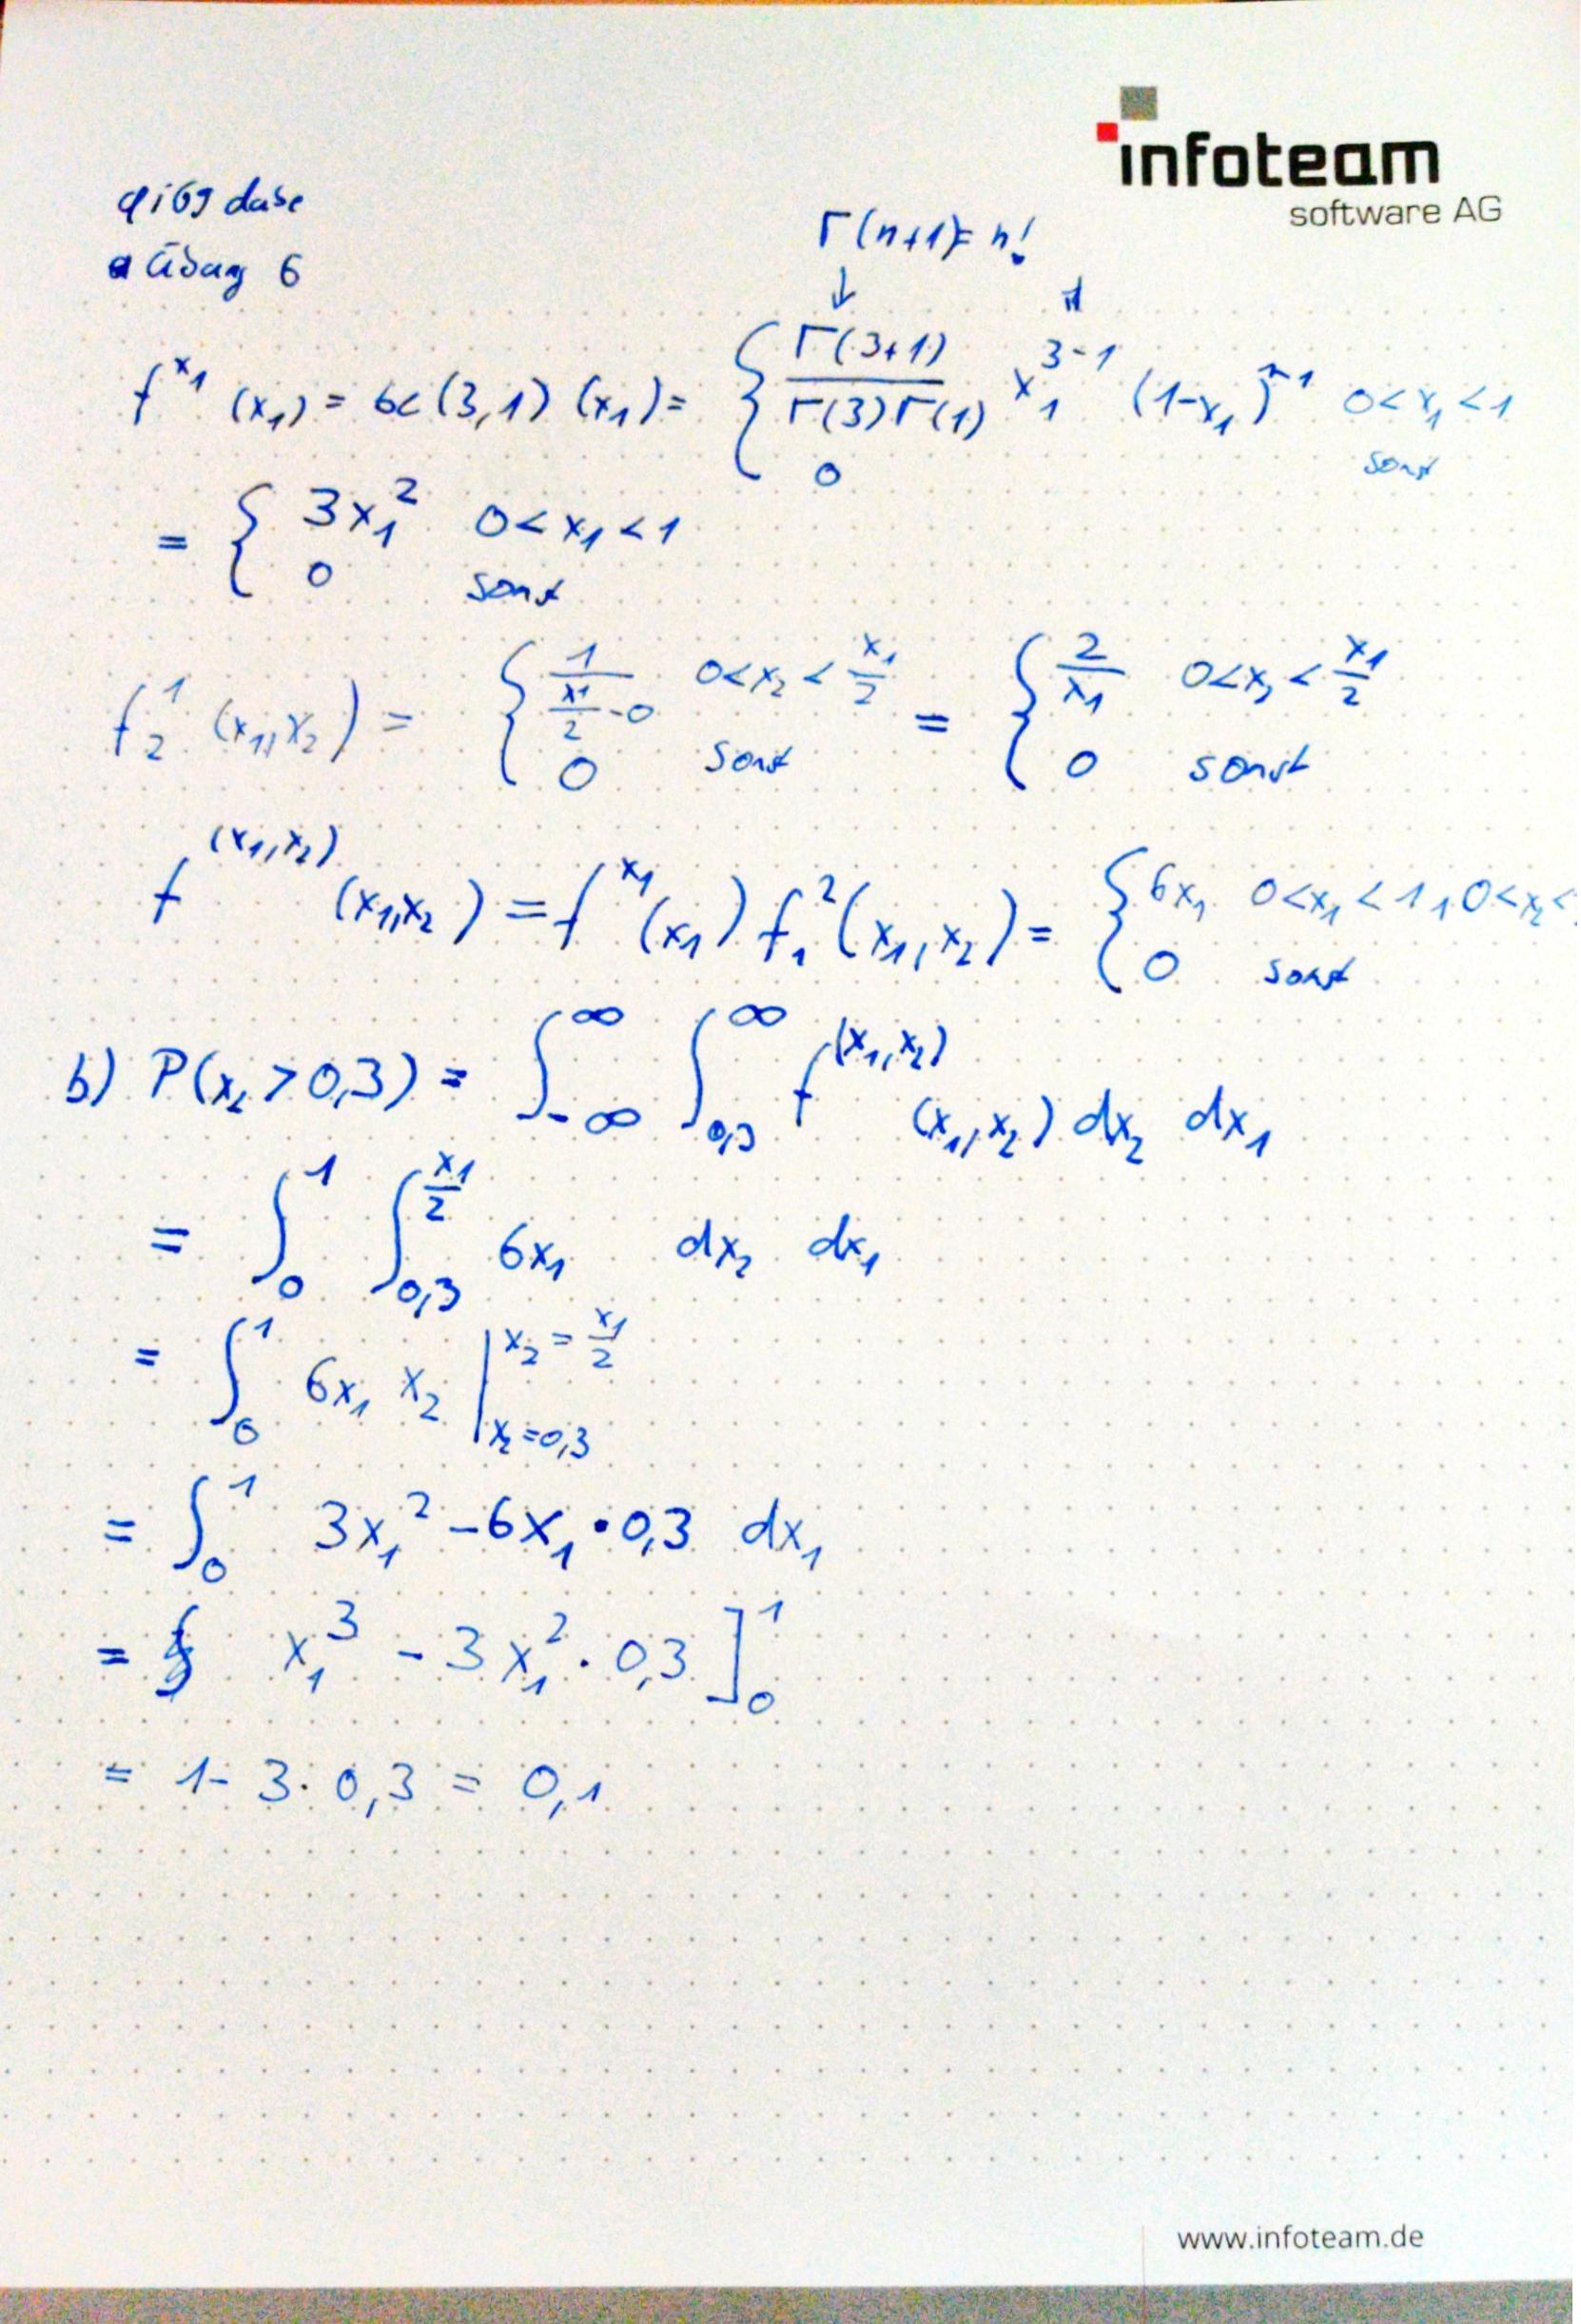 infoteam
software AG
qi69 dabe
a Übung 6
Γ(n+1)= n!
↓
f^{x_1} (x_1) = be(3,1) (x_1) = { Γ(3+1) / Γ(3)Γ(1) x_1^{3-1} (1-x_1)^{1-1} 0<x_1<1
0 sonst
= { 3x_1^2 0<x_1<1
0 sonst
f_2^1 (x_1,x_2) = { 1 / (x_1/2 - 0) 0<x_2<x_1/2 = { 2/x_1 0<x_2<x_1/2
0 sonst 0 sonst
f^{(x_1,x_2)} (x_1,x_2) = f^{x_1}(x_1) f_1^2(x_1,x_2) = { 6x_1 0<x_1<1, 0<x_2<
0 sonst
b) P(x_2>0,3) = ∫_{-∞}^{∞} ∫_{0,3}^{∞} f^{(x_1,x_2)} (x_1,x_2) dx_2 dx_1
= ∫_0^1 ∫_{0,3}^{x_1/2} 6x_1 dx_2 dx_1
= ∫_0^1 6x_1 x_2 |_{x_2=0,3}^{x_2=x_1/2}
= ∫_0^1 3x_1^2 - 6x_1 · 0,3 dx_1
= x_1^3 - 3x_1^2 · 0,3 ]_0^1
= 1 - 3 · 0,3 = 0,1
www.infoteam.de